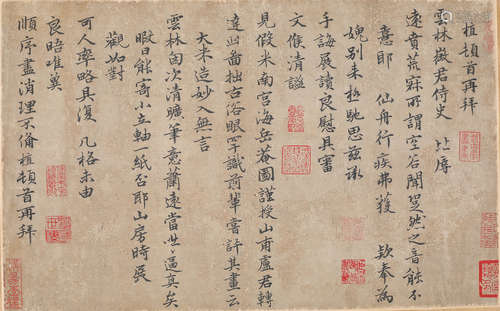 植頓首再拜
雲林徵君侍史 比辱
遠賁荒寂所謂空谷聞跫然之音能不
憙耶 仙舟行疾弗獲 欵奉為
媿別来極馳思茲承
手誨展讀良慰具審
文候清謐
見假米南宮海岳菴圖謹授山甫盧君轉
達此啚拙古俗眼罕識前輩嘗許其畫云
大米造妙入無言
雲林向次清曠筆意蕭遠當世逼真矣
暇日能寄小立軸一紙否耶山房時展
觀如對
可人率略具復 凡格未由
良晤唯冀
順序盡消理不備植頓首再拜